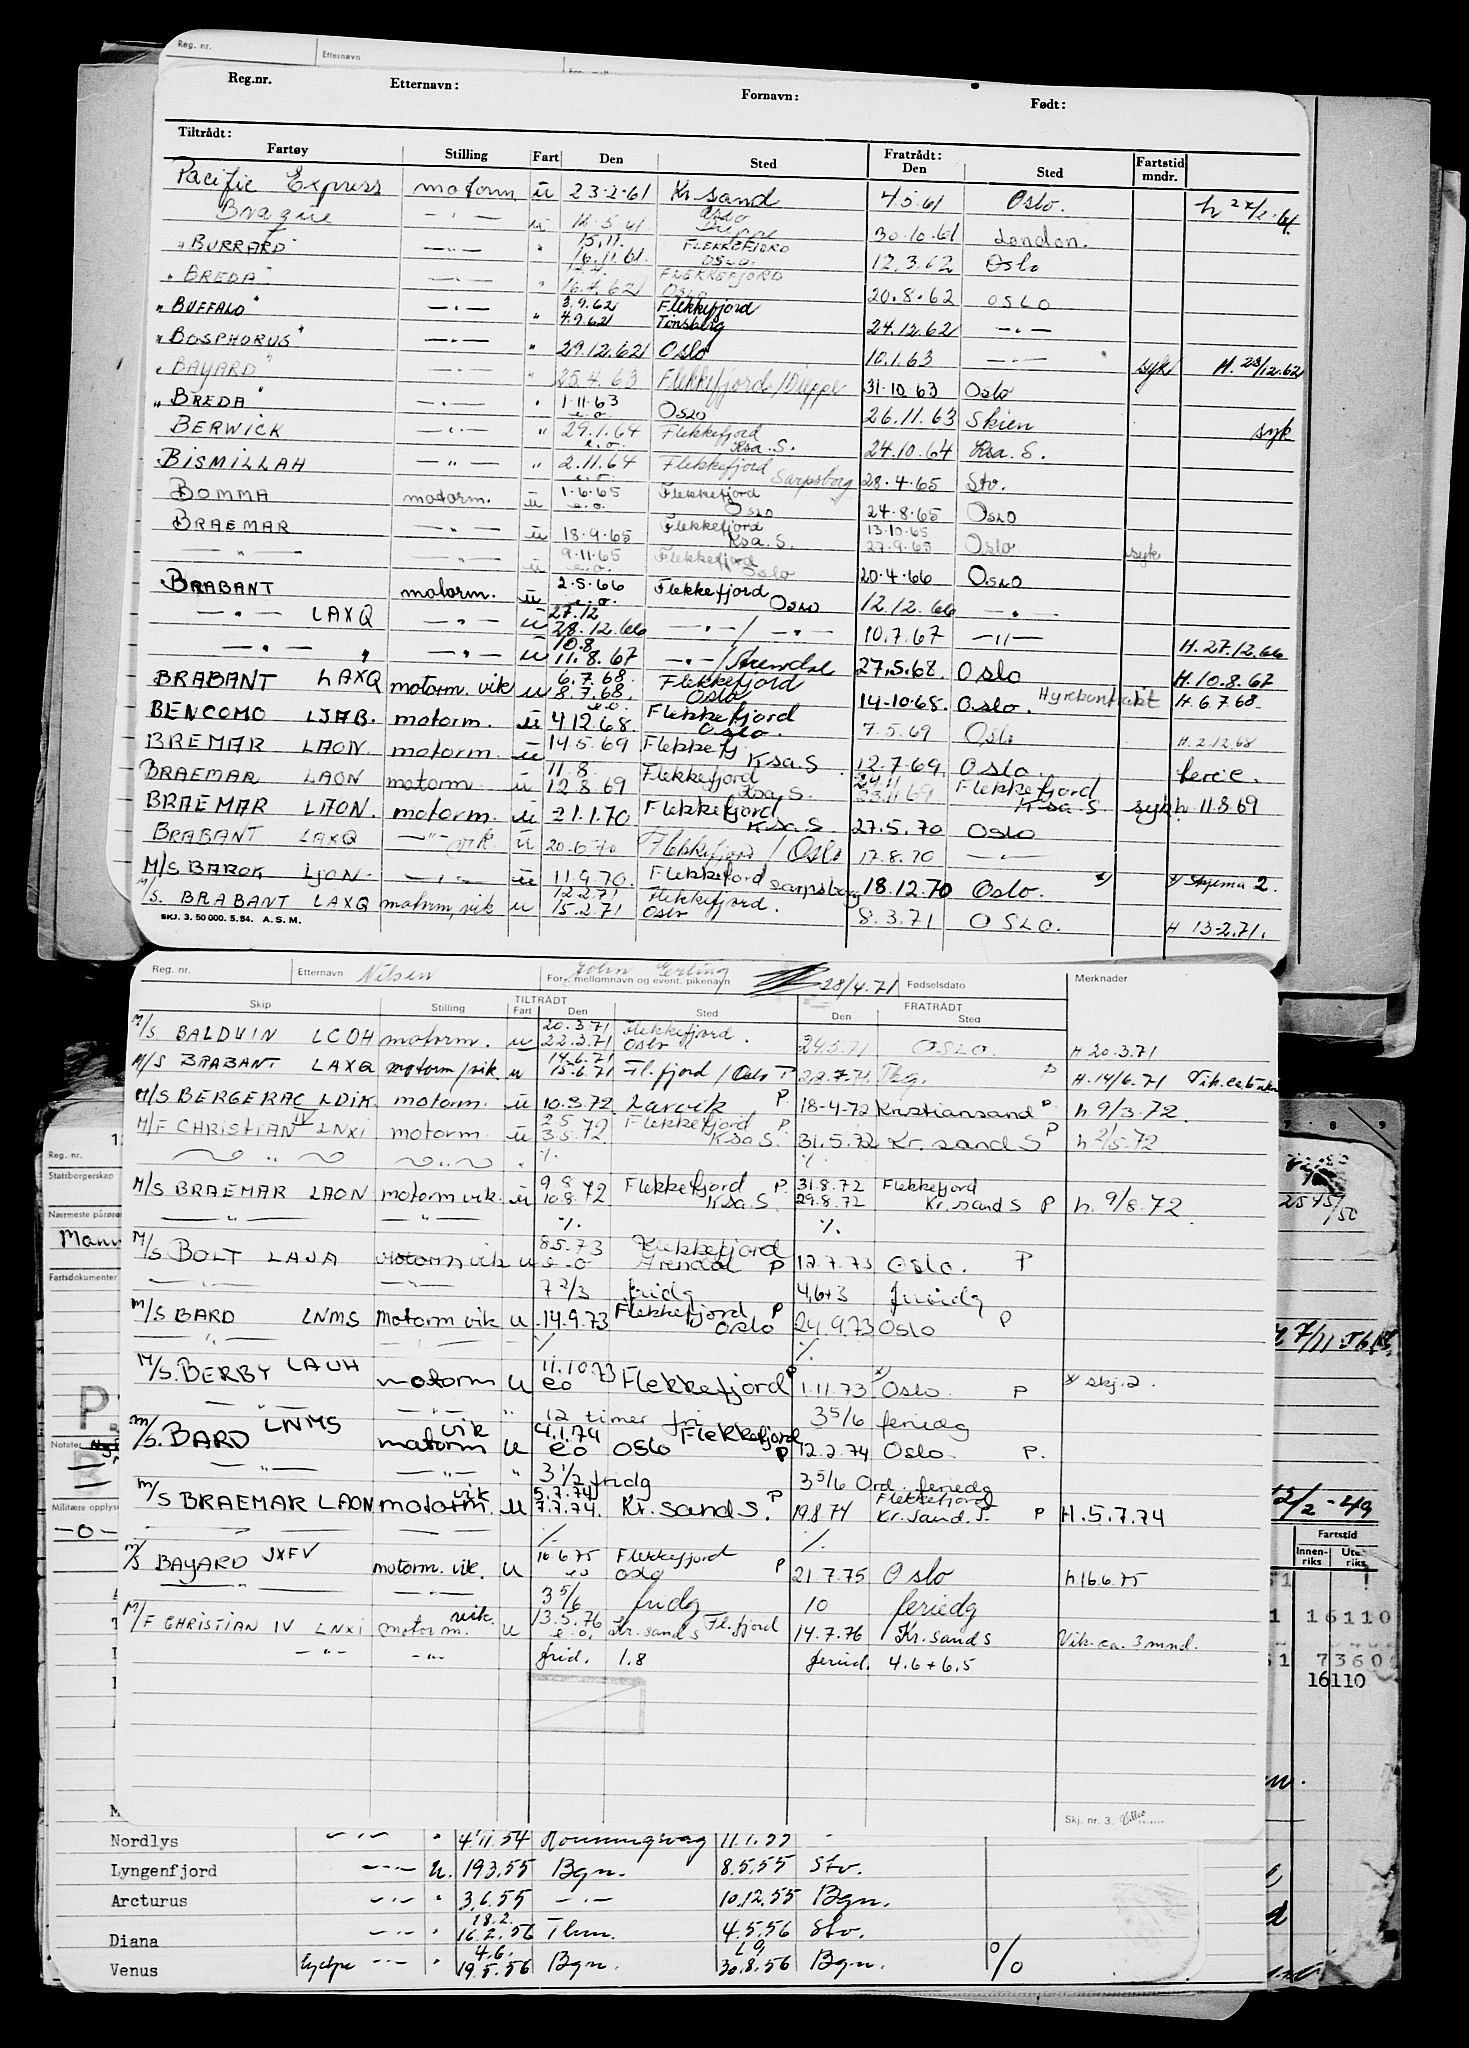 Reg. nr. Etternavn
Reg.nr. Etternavn: Fornavn: Født:
Tiltrådt: Fratrådt: Fartstid
Fartøy Stilling Fart Den Sted Den Sted mndr.
Pacific Express motorm ü 23·2·61 Kr.sand 4.5.61 Oslo.
Braque —"— 30·10·61 London.
"BURRARD" —"— " 15.11. 16.11.61. FLEKKEFJORD OSLO. 12.3.62 Oslo
"BREDA" —"— " 16.4.62 FLEKKEFJORD Oslo 20.8.62 OSLO
"BUFFALO" —"— " 3.9.62 4.9.62 Flekkefjord Tønsberg 24.12.62 —"—
"BOSPHORUS" —"— " 29.12.62 Oslo 10.1.63 —"— syk H. 28/12.62
"BAYARD" —"— " 25.4.63 Flekkefjord/Dieppe 31.10.63 Oslo
"BREDA" —"— " 1.11.63 e.o. Oslo 26.11.63 Skien syk
BERWICK —"— " 29.1.64 e.o. Flekkefjord Ksa.S. 24.10.64 Ksa.S.
BISMILLAH —"— " 2.11.64 e.o. Flekkefjord Sarpsborg 28.4.65 Stv.
BOMMA motorm. ü 1.6.65 e.o. Flekkefjord Oslo 24.8.65 Oslo
BRAEMAR —"— ü 18.9.65 Flekkefjord Ksa.S. 13.10.65 27.9.65 Oslo syk
—"— —"— ü 9.11.65 e.o. Flekkefjord Oslo 20.4.66 Oslo
BRABANT motorm. ü 2.5.66 e.o. Flekkefjord Oslo 12.12.66 —"—
—"— LAXQ —"— ü 27.12 28.12.66 —"—/—"— 10.7.67 —"— H.27.12.66
—"— " —"— ü 10.8. 11.8.67 —"—/Arendal 27.5.68. Oslo H.10.8.67
BRABANT LAXQ motorm. vik ü 6.7.68. 8.7.68. Flekkefjord Oslo 14.10.68. Oslo. Hyrekontrakt H.6.7.68.
BENCOMO LJAB. motorm. ü e.o. 4.12.68. Flekkefjord Oslo. 7.5.69 Oslo H.2.12.68
BREMAR LAON. motorm. ü 14.5.69 Flekkefj. Ksa.S. 12.7.69. Oslo. ferie.
BRAEMAR LAON motorm ü 11.8. 12.8.69 Flekkefjord Ksa.S. Flekkefjord Ksa.S. syk h. 11.8.69
BRAEMAR LAON. motorm. ü 21.1.70 Flekkefjord Ksa.S. 27.5.70 Oslo
BRABANT LAXQ —"— vik. ü 20.6.70 Flekkefjord/Oslo 17.8.70 —"—
M/S. BAROK LJON. —"— ü 11.9.70. Flekkefjord Sarpsborg 18.12.70 Oslo. x) x) Skjema 2.
M/S. BRABANT LAXQ motorm, vik ü 12.2.71 15.2.71 Flekkefjord. Oslo 8.3.71 OSLO. H 13-2.71.
SKJ. 3. 50 000. 5. 54. A. S. M.
Reg. nr. Etternavn Nilsen For-, mellomnavn og event. pikenavn John Erling 28/4.71 Fødselsdato Merknader
TILTRÅDT FRATRÅDT
Skip Stilling Fart Den Sted Den Sted
M/S BALDUIN LCOH motorm. u 20.3.71 22.3.71 Flekkefjord. Oslo 24.5.71 OSLO. H 20.3.71
M/S BRABANT LAXQ motorm/vik. u 14.6.71 15.6.71 Fl.fjord/Oslo P Tbg. P H.14/6.71
M/S BERGERAC LDIK motorm. ü 10.3.72 Larvik P 18-4-72 Kristiansand P h 9/3.72
M/F CHRISTIAN IV LNXI motorm. ü 2.5 3.5.72 Flekkefjord Ksa S. P 31.5.72 Kr.sand S P h 2/5.72
" " ·/· ·/·
M/S BRAEMAR LAON motorm vik. ü 9.8 10.8.72 Flekkefjord Ksa.S. P 31.8.72 29.8.72 Flekkefjord Kr.sand S P h. 9/8.72
—"— —"— ·/· ·/·
M/S BOLT LAJA motorm vik u 8.5.73 e-o Flekkefjord Arendal P 12.7.73 Oslo. P
—"— —"— 7 2/3 fridg 4,6+3 feriedg
M/S BARD LNMS Motorm vik u 14.9.73 Flekkefjord Oslo P 24.9.73 Oslo P
—"— —"— ·/· ·/·
M/S. BERBY LAUH motorm u 11.10.73 eo Flekkefjord P 1.11.73 x) Oslo. P x) skj.2.
—"— —"— " 12 timer fri 3 5/6 feriedg
M/S. BARD LNMS motorm vik u 4.1.74 eo Oslo Flekkefjord P 12.2.74 Oslo. P.
—"— —"— " 3 1/2 fridg 3 5/6 Ord. feriedg
M/S BRAEMAR LAON motorm. vik u 5.7.74 7.7.74. Kr.sand S. P 19.8.74 Flekkefjord Kr.sand.S. P H.5.7.74
—"— ·/· ·/·
M/S BAYARD JXFV motorm. vik. u 16.6.75 eo Flekkefjord Oslo P 21.7.75 Oslo h 16.6.75
—"— —"— 3 5/6 fridg 10 feriedg
M/F CHRISTIAN IV LNXI motorm. vik. u 13.5.76 e.o. Kr.sand S Fl.fjord 14.7.76 Kr.sand S Vik. ca. 3 mnd.
—"— —"— frid. 1.8 feried. 4.6+6.5
Skj. nr. 3.
Reg. nr.
Statsborgerskap
Nærmeste pårøre
Fartsdokumenter
Notater
Militære opplysn
—o—
7 · 8 · 9
12/2 -49
Fartstid
Innenriks Ute riks
16110
7360
16110
Nordlys —"— " 4.11.54 Honningsvåg
Lyngenfjord —"— u. 19.3.55 Bgn. 8.5.55 Stv.
Arcturus —"— " 3.6.55 —"— 10.12.55 Bgn.
Diana —"— " 18.2. 16.2.56 Thm. 4.5.56 Stv.
Venus —"— " 4.6. 19.5.56 Bgn. 30.8.56 Bgn. %